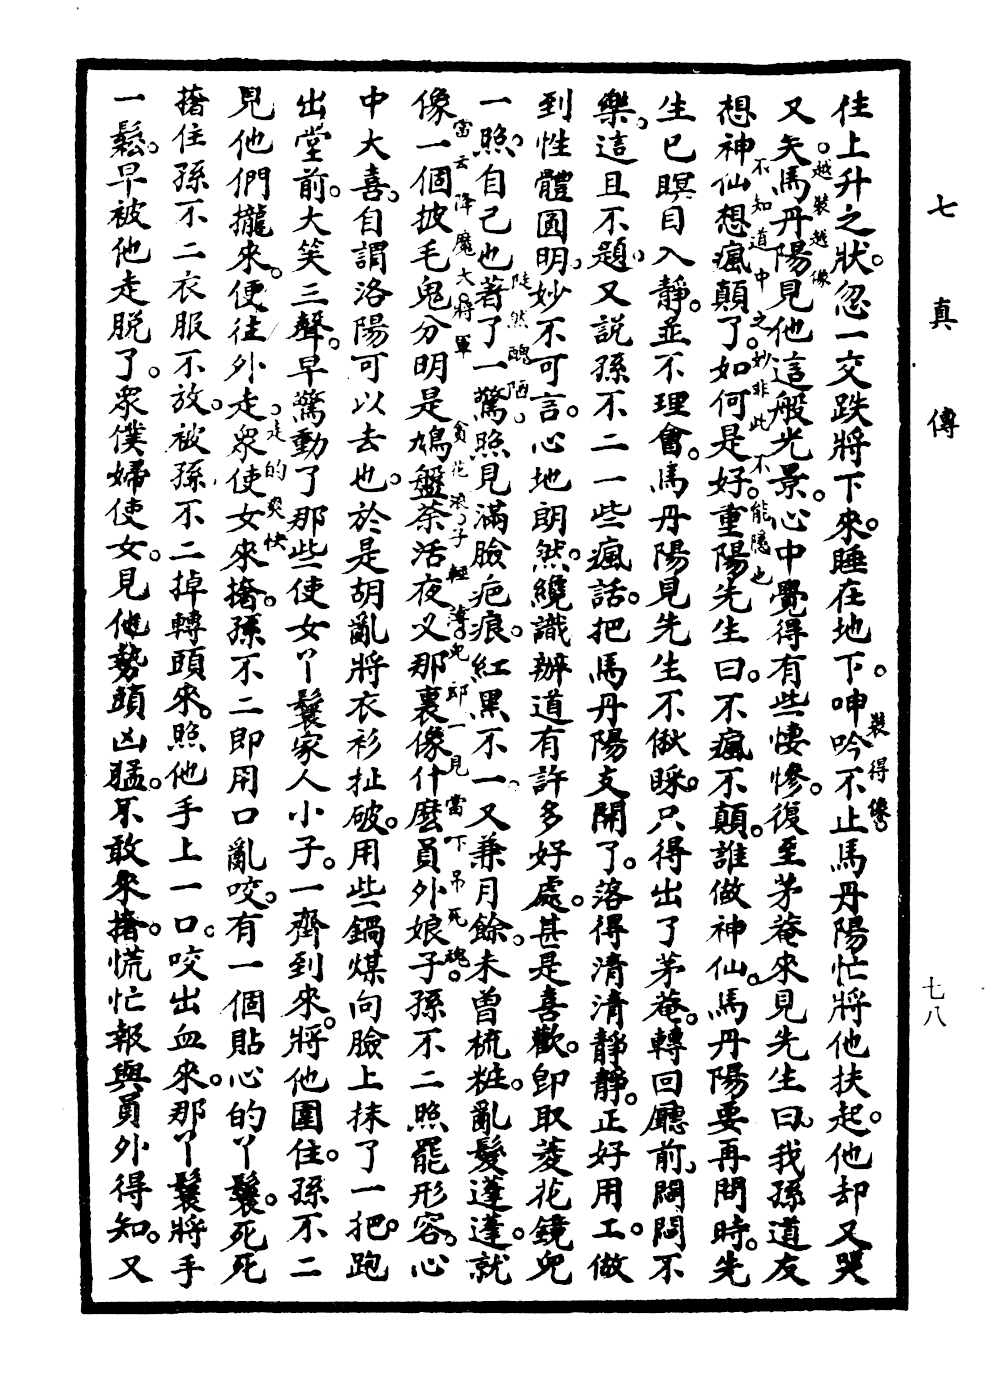 七真傳
七八
往上升之狀。忽一交跌將下來。睡在地下。呻吟不止馬丹陽忙將他扶起。他却又哭
裝得像
又矢。馬丹陽見他這般光景。心中覺得有些悽慘。復至茅菴來見先生曰。我孫道友
越裝越像
想神仙想瘋顛了。如何是好。重陽先生曰。不瘋不顛。誰做神仙。馬丹陽要再問時。先
不知道中之妙非此不能隱也
生已瞑目入靜。並不理會。馬丹陽見先生不偢睬。只得出了茅菴。轉回廳前。悶悶不
樂。這且不題。又説孫不二一些瘋話。把馬丹陽支開了。落得清清靜靜。正好用工。做
到性體圓明。妙不可言。心地朗然。纔識辦道有許多好處。甚是喜歡。即取菱花鏡兒
陡然醜陋
一照。自己也著了一驚照見滿臉疤痕。紅黑不一。又兼月餘。未曾梳粧。亂髮蓬蓬。就
當云降魔大將軍 貪花浪子輕薄兒郎一見當下吊死魂。
像一個披毛鬼分明是鳩盤荼活夜叉那裏像什麽員外娘子。孫不二照罷形容。心
中大喜。自謂洛陽可以去也。於是胡亂將衣衫扯破。用些鍋煤向臉上抹了一把。跑
出堂前。大笑三聲。早驚動了那些使女丫鬟家人小子。一齊到來。將他圍住。孫不二
見他們攏來。便往外走。衆使女來撦。孫不二即用口亂咬。有一個貼心的丫鬟。死死
走的爽快
撦住孫不二衣服不放。被孫不二掉轉頭來。照他手上一口。咬出血來。那丫鬟將手
一鬆。早被他走脱了。衆僕婦使女。見他勢頭凶猛。不敢來撦。慌忙報與員外得知。又